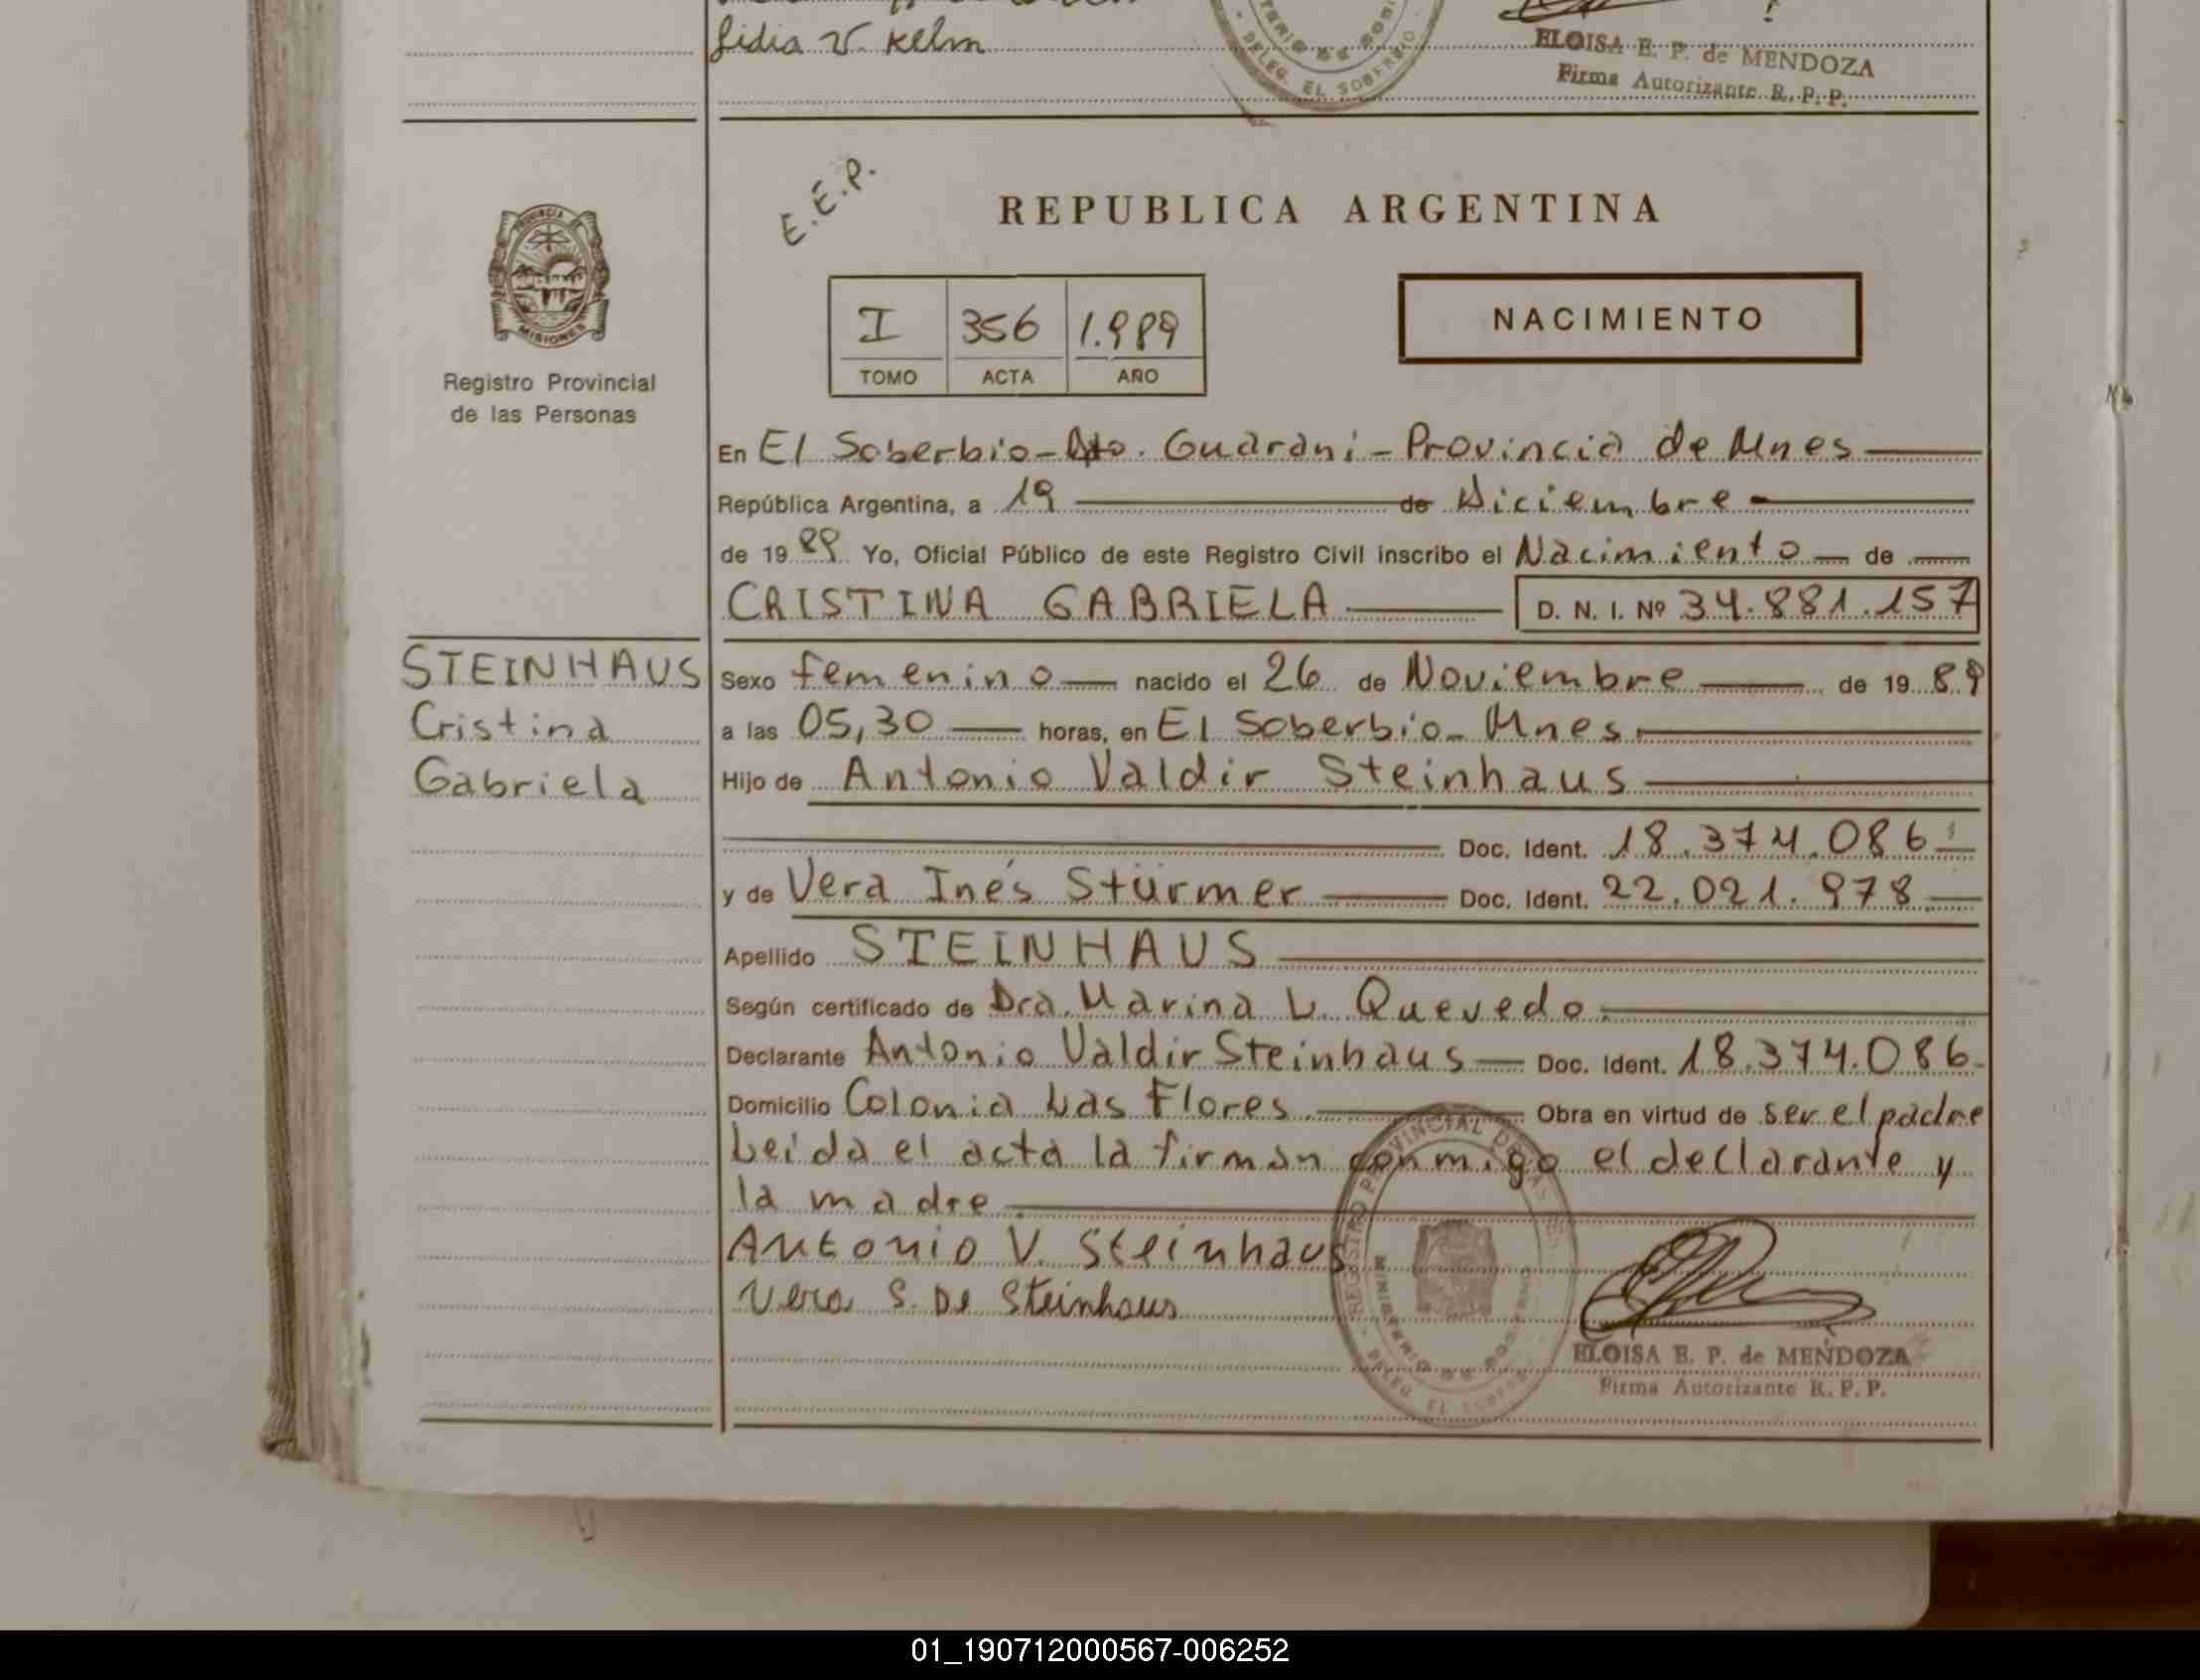 Lidia V. Kelm
ELOISA E. P. de MENDOZA
Firma Autorizante R. P. P.
DELEG. EL SOBERBIO
E.E.P.
REPUBLICA ARGENTINA
PROVINCIA DE
MISIONES
I 356 1.989
TOMO ACTA AÑO
NACIMIENTO
Registro Provincial
de las Personas
En El Soberbio-Dto. Guaraní-Provincia de Mnes
República Argentina, a 19 de Diciembre
de 1989 Yo, Oficial Público de este Registro Civil inscribo el Nacimiento de
CRISTINA GABRIELA D. N. I. Nº 34.881.157
STEINHAUS
Cristina
Gabriela
Sexo femenino nacido el 26 de Noviembre de 1989
a las 05,30 horas, en El Soberbio-Mnes.
Hijo de Antonio Valdir Steinhaus
Doc. Ident. 18.374.086
y de Vera Inés Stürmer Doc. Ident. 22.021.978
Apellido STEINHAUS
Según certificado de Dra. Marina L. Quevedo.
Declarante Antonio Valdir Steinhaus Doc. Ident. 18.374.086
Domicilio Colonia Las Flores Obra en virtud de ser el padre
Leída el acta la firman conmigo el declarante y
la madre.
Antonio V. Steinhaus
Vera S. De Steinhaus
REGISTRO PROVINCIAL DE LAS
ELOISA E. P. de MENDOZA
Firma Autorizante R. P. P.
01_190712000567-006252